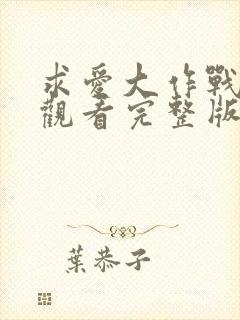 求愛大作戰
觀看完整版
葉恭子